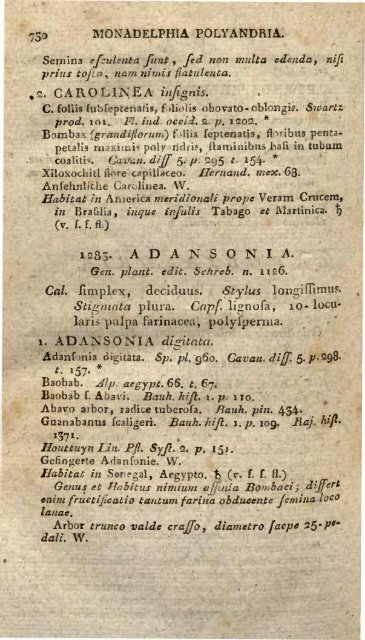 730 MONADELPHIA POLYANDRIA.
Semina eſculenta ſunt, ſed non multa edenda, niſi
prius toſta, nam nimis flatulenta.
2. CAROLINEA inſignis.
C. foliis ſubſeptenatis, foliolis obovato-oblongis. Swartz
prod. 101. Fl. ind. occid. 2. p. 1202. *
Bombax (grandiflorum) foliis ſeptenatis, floribus penta-
petalis maximis poly ndris, ſtaminibus baſi in tubum
coalitis. Cavan. diſſ 5. p. 295 t. 154. *
Xiloxochitl flore capillaceo. Hernand. mex. 68.
Anſehnliche Carolinea. W.
Habitat in America meridionali prope Veram Crucem,
in Braſilia, inque inſulis Tabago et Martinica. ♄
(v. ſ. ſ. fl.)
1283. ADANSONIA.
Gen. plant. edit. Schreb. n. 1126.
Cal. ſimplex, deciduus. Stylus longiſſimus.
Stigmata plura. Capſ. lignoſa, 10-locu-
laris pulpa farinacea, polyſperma.
1. ADANSONIA digitata.
Adanſonia digitata. Sp. pl. 960. Cavan. diſſ. 5. p. 298.
t. 157. *
Baobab. Alp. aegypt. 66. t. 67.
Baobab ſ. Abavi. Bauh. hiſt. 1. p. 110.
Abavo arbor, radice tuberoſa. Bauh. pin. 434.
Guanabanus ſcaligeri. Bauh. hiſt. 1. p. 109. Raj. hiſt.
1371.
Houttuyn Lin. Pfl. Syſt. 2. p. 151.
Gefingerte Adanſonie. W.
Habitat in Senegal, Aegypto. ♄ (v. ſ. ſ. fl.)
Genus et Habitus nimium affinia Bombaci; differt
enim fructificatio tantum farina obducente ſemina loco
lanae.
Arbor trunco valde craſſo, diametro ſaepe 25-pe-
dali. W.